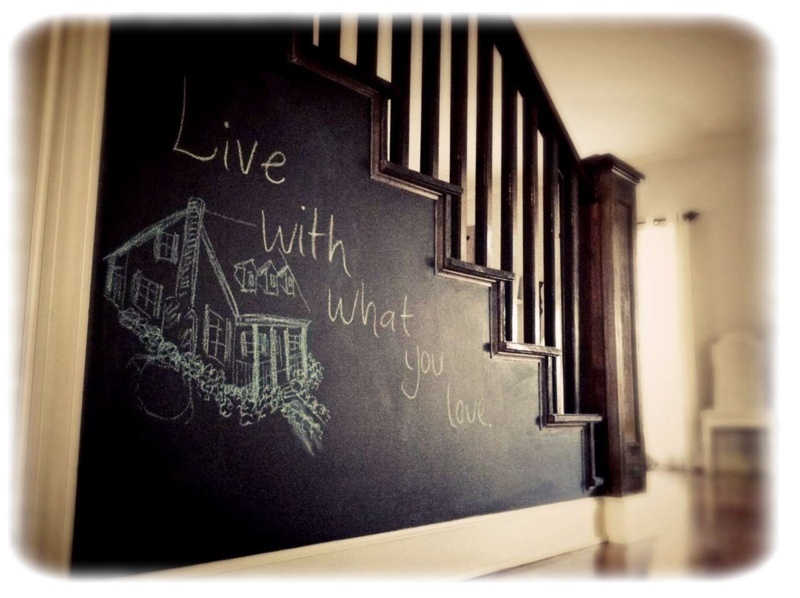 Live
with
what
you
love.